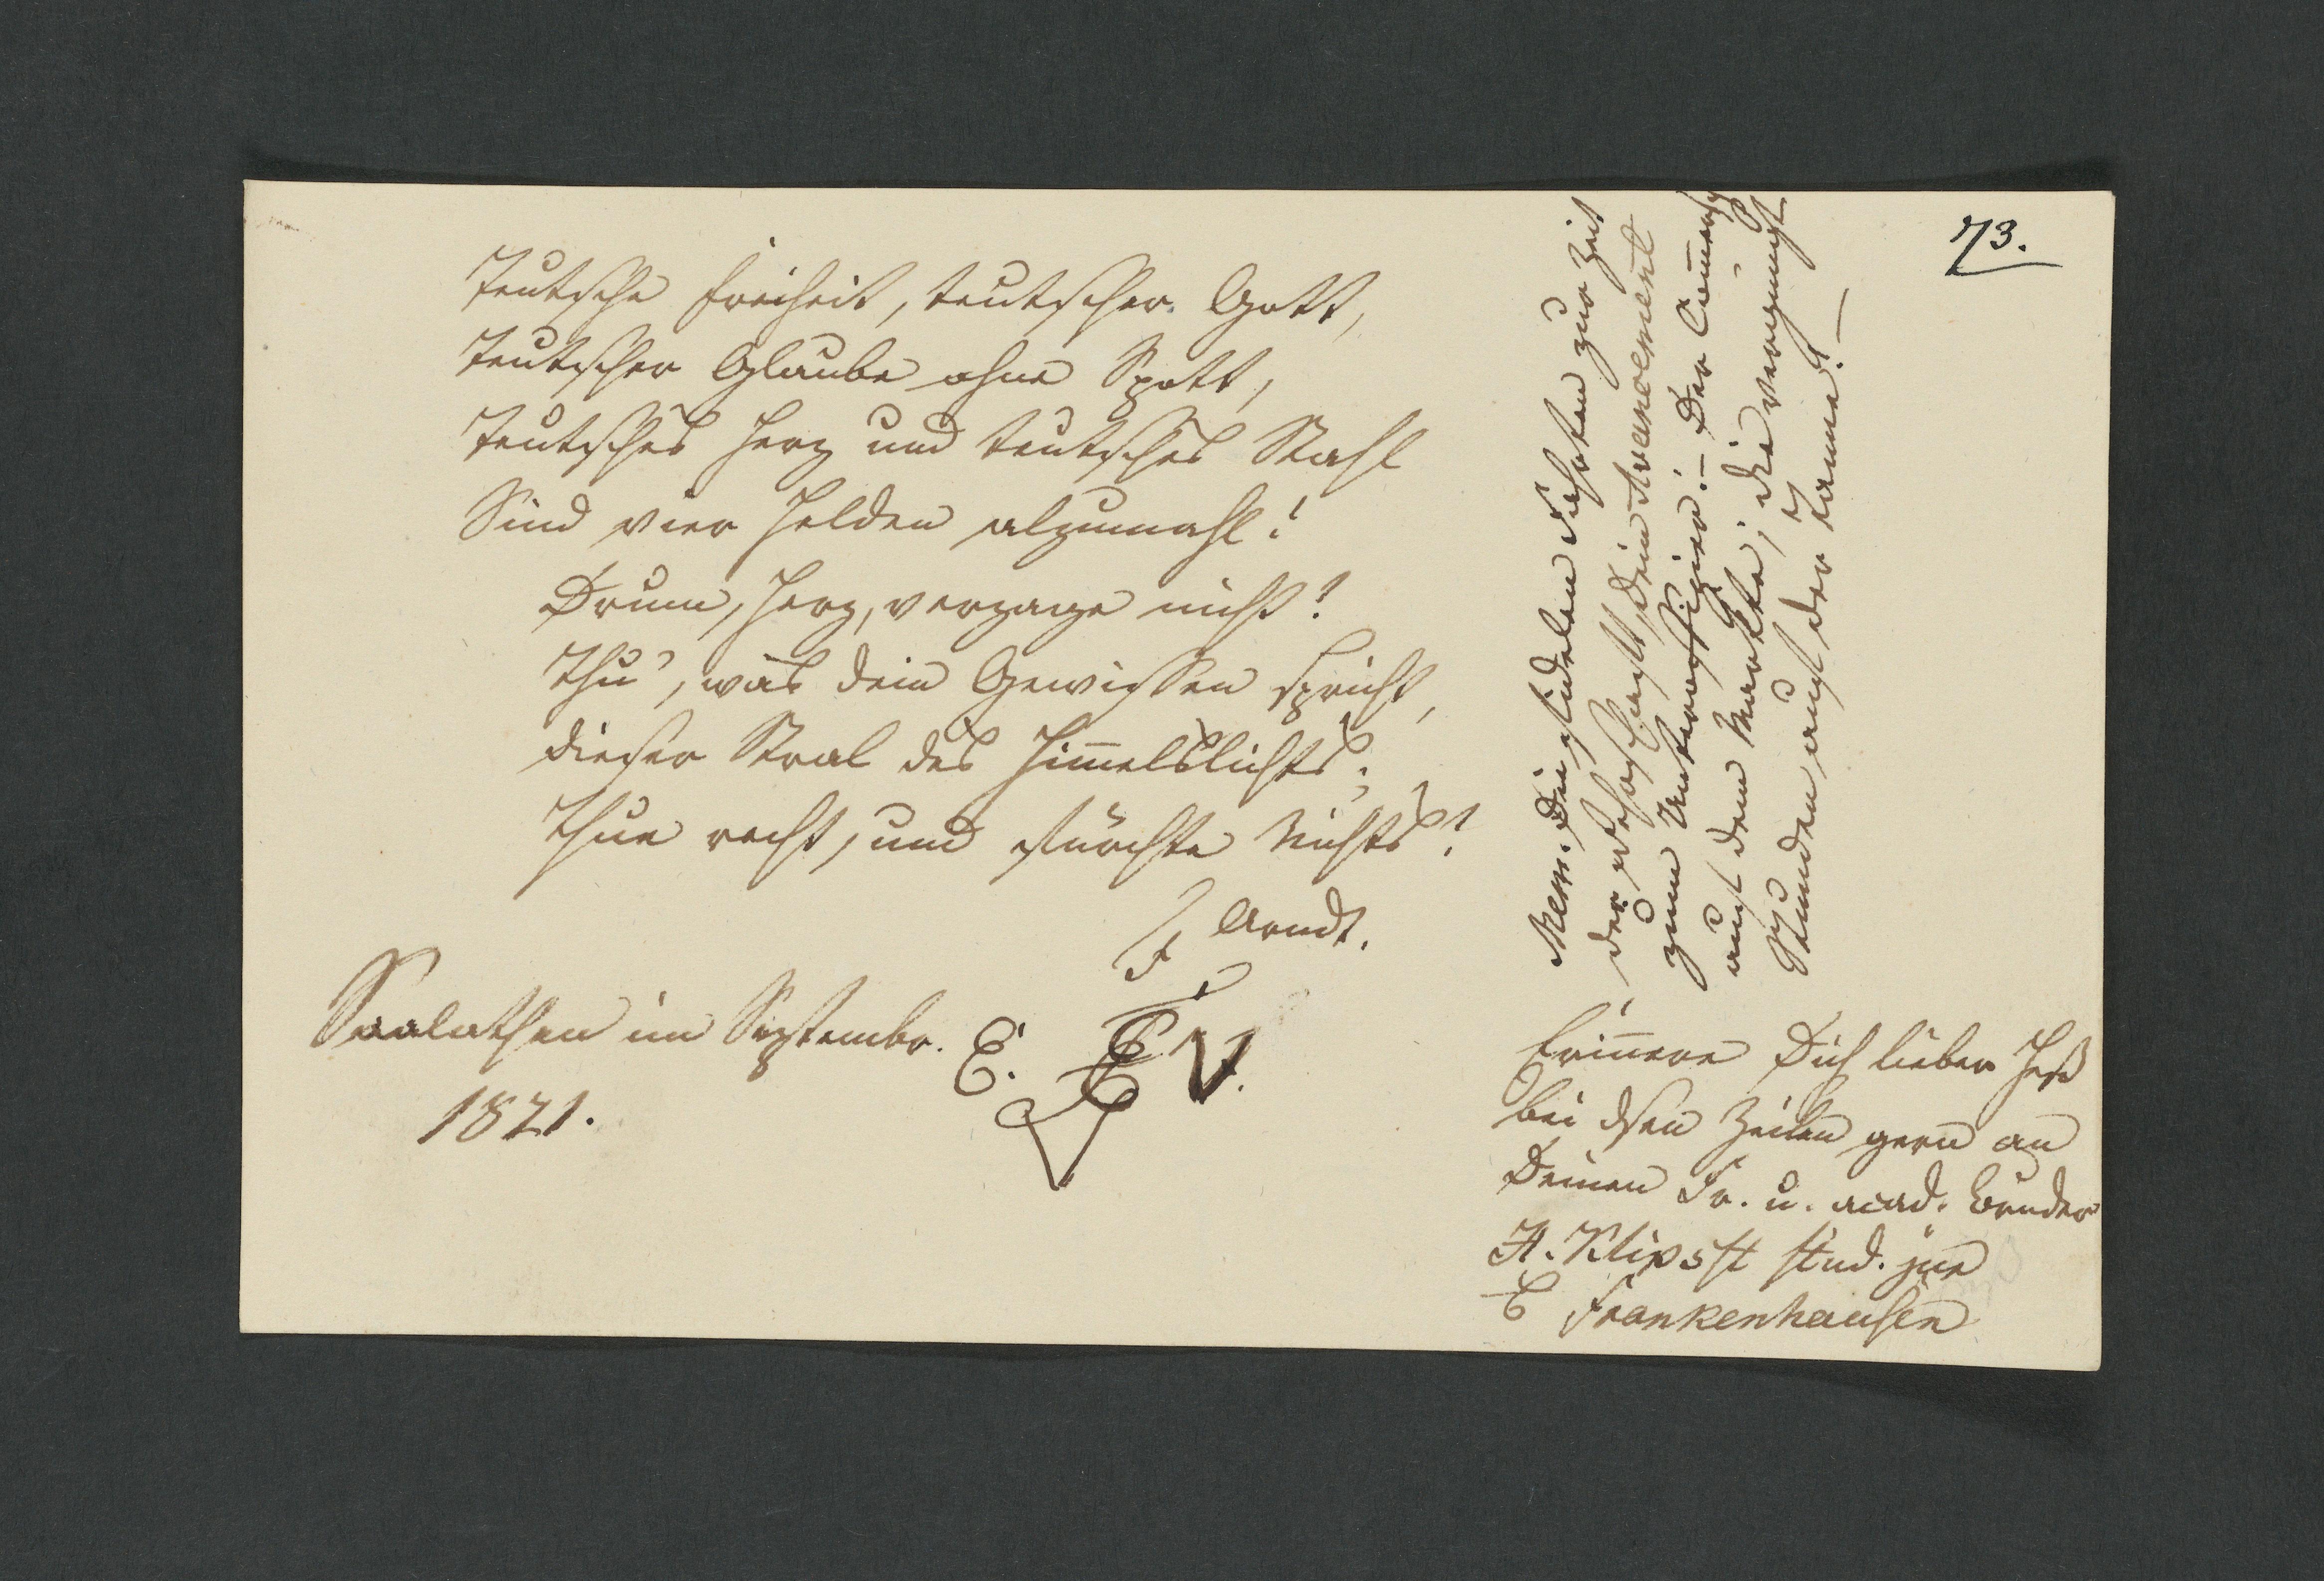 73.
Teutsche Freiheit, teutscher Gott,
Teutscher Glaube ohne Spott,
Teutsches Herz und teutsches Stahl
Sind vier Helden alzumahl!
Drum, Herz, verzage nicht!
Thu', was dein Gewissen spricht,
dieser Stral des Himmelslichts;
Thue recht, und fürchte Nichts!
Arndt.
Saalathen im Septembr.
1821.
E. F. V.
Mem. Die fidelen Fahrten zur Zeit
der, Dein Avancement
zum Unteroffizier. – Der Commersch
auf dem Markte; die vergnügt
Stunden auf der Tanne! –
Erinnere Dich lieber Heß
bei dsen Zeilen gern an
Deinen Fr. u. acad. Bruder
A. Klipsst stud. jur
Frankenhausen